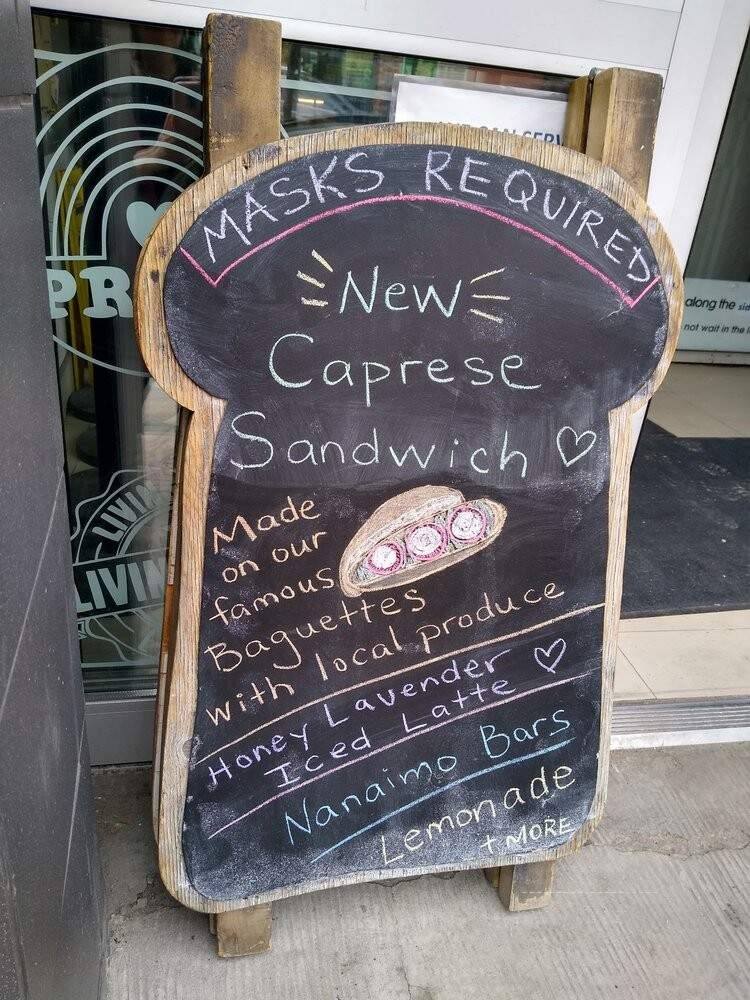 MASKS REQUIRED
New
Caprese
Sandwich ♡
Made
on our
famous
Baguettes
with local produce
Honey Lavender ♡
Iced Latte
Nanaimo Bars
Lemonade
+ MORE
PR
LIVIN
LIVIN
CAN SERV
along the sid
not wait in the l